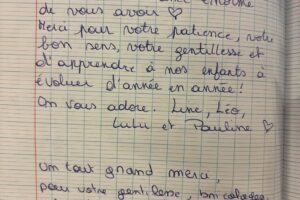 de vous avoir ♡
Merci pour votre patience, votre
bon sens, votre gentillesse et
d'apprendre à nos enfants à
évoluer d'année en année !
On vous adore. Line, Léo,
Lulu et Pauline ♡
Un tout grand merci,
pour votre gentillesse, bricolages